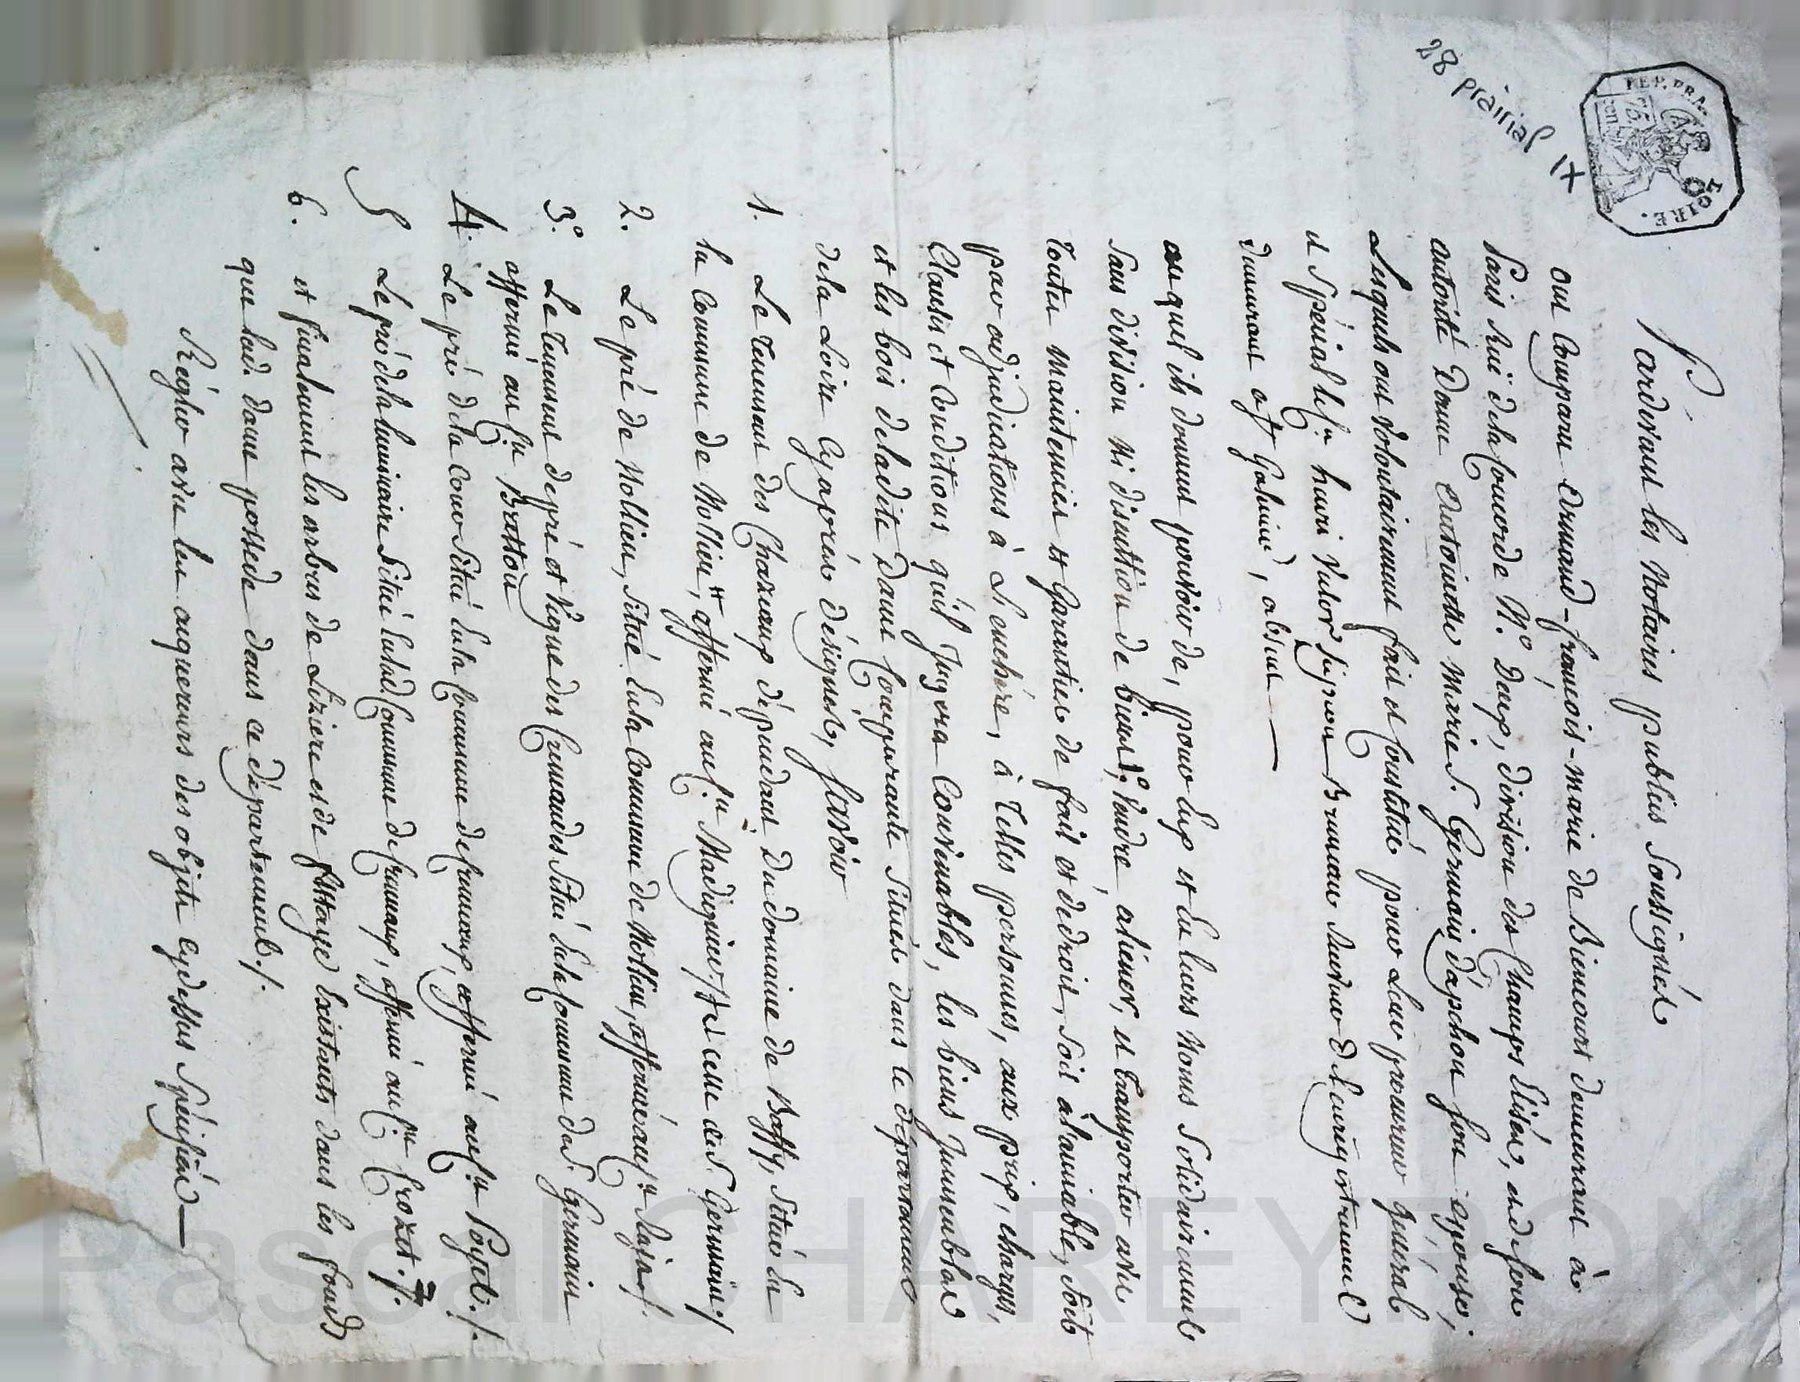 28 prairial 17
REP. FRA.
75
cen
LOIRE.
Pardevant les Notaires publics Soussignés
ont Comparu Armand-françois-marie de Biencourt demeurant à
Paris ruë dela Concorde N.° Deux, division des Champs Elisées, et de son
autorité Dame Antoinette Marie S. Germain d'apchon son epouse;
Lesquels ont volontairement fait et Constitué pour Leur procureur général
et Spécial le C.en henri Victor
demeurant absent
auquel ils donnent pouvoir de, pour Eux et en leurs noms Solidairement
Sans division ni discution de biens, 1.° Vendre aliéner, et transporter avec
toutes maintenües et garanties de fait et de droit, Soit à l'amiable, Soit
par adjudications à L'enchére, à telles personnes, aux prix, charges,
Clauses et Conditions qu'il Jugera Convenables, les biens Immeubles
et les bois deladite Dame Comparante Situés dans le département
dela Loire Cyaprès désignés, Savoir
1. Le tenement des Charcoup dépendant Du domaine de Baffy, Situé en
la Commune de Nollieu, affermé au C.en et celle de S. Germain;/
2. Le pré de Nollieu, Situé en la Commune de Nollieu, affermé au C.en
3.° Le tenement de pré et vigne des Situé en la Commune de S. Germain
affermé au C.en
4. Le pré dela Cour Situé en la Commune de affermé au C.en
5 Le pré dela luminaire Situé en lad. Commune de affermé au C.en Crozet./.
6. et finalement les arbres de Liziere et de Existants dans les fonds
que lad. dame possede dans ce département./.
Régler avec les acquereurs des objets cydessus Spécifiés
Pascal CHAREYRON